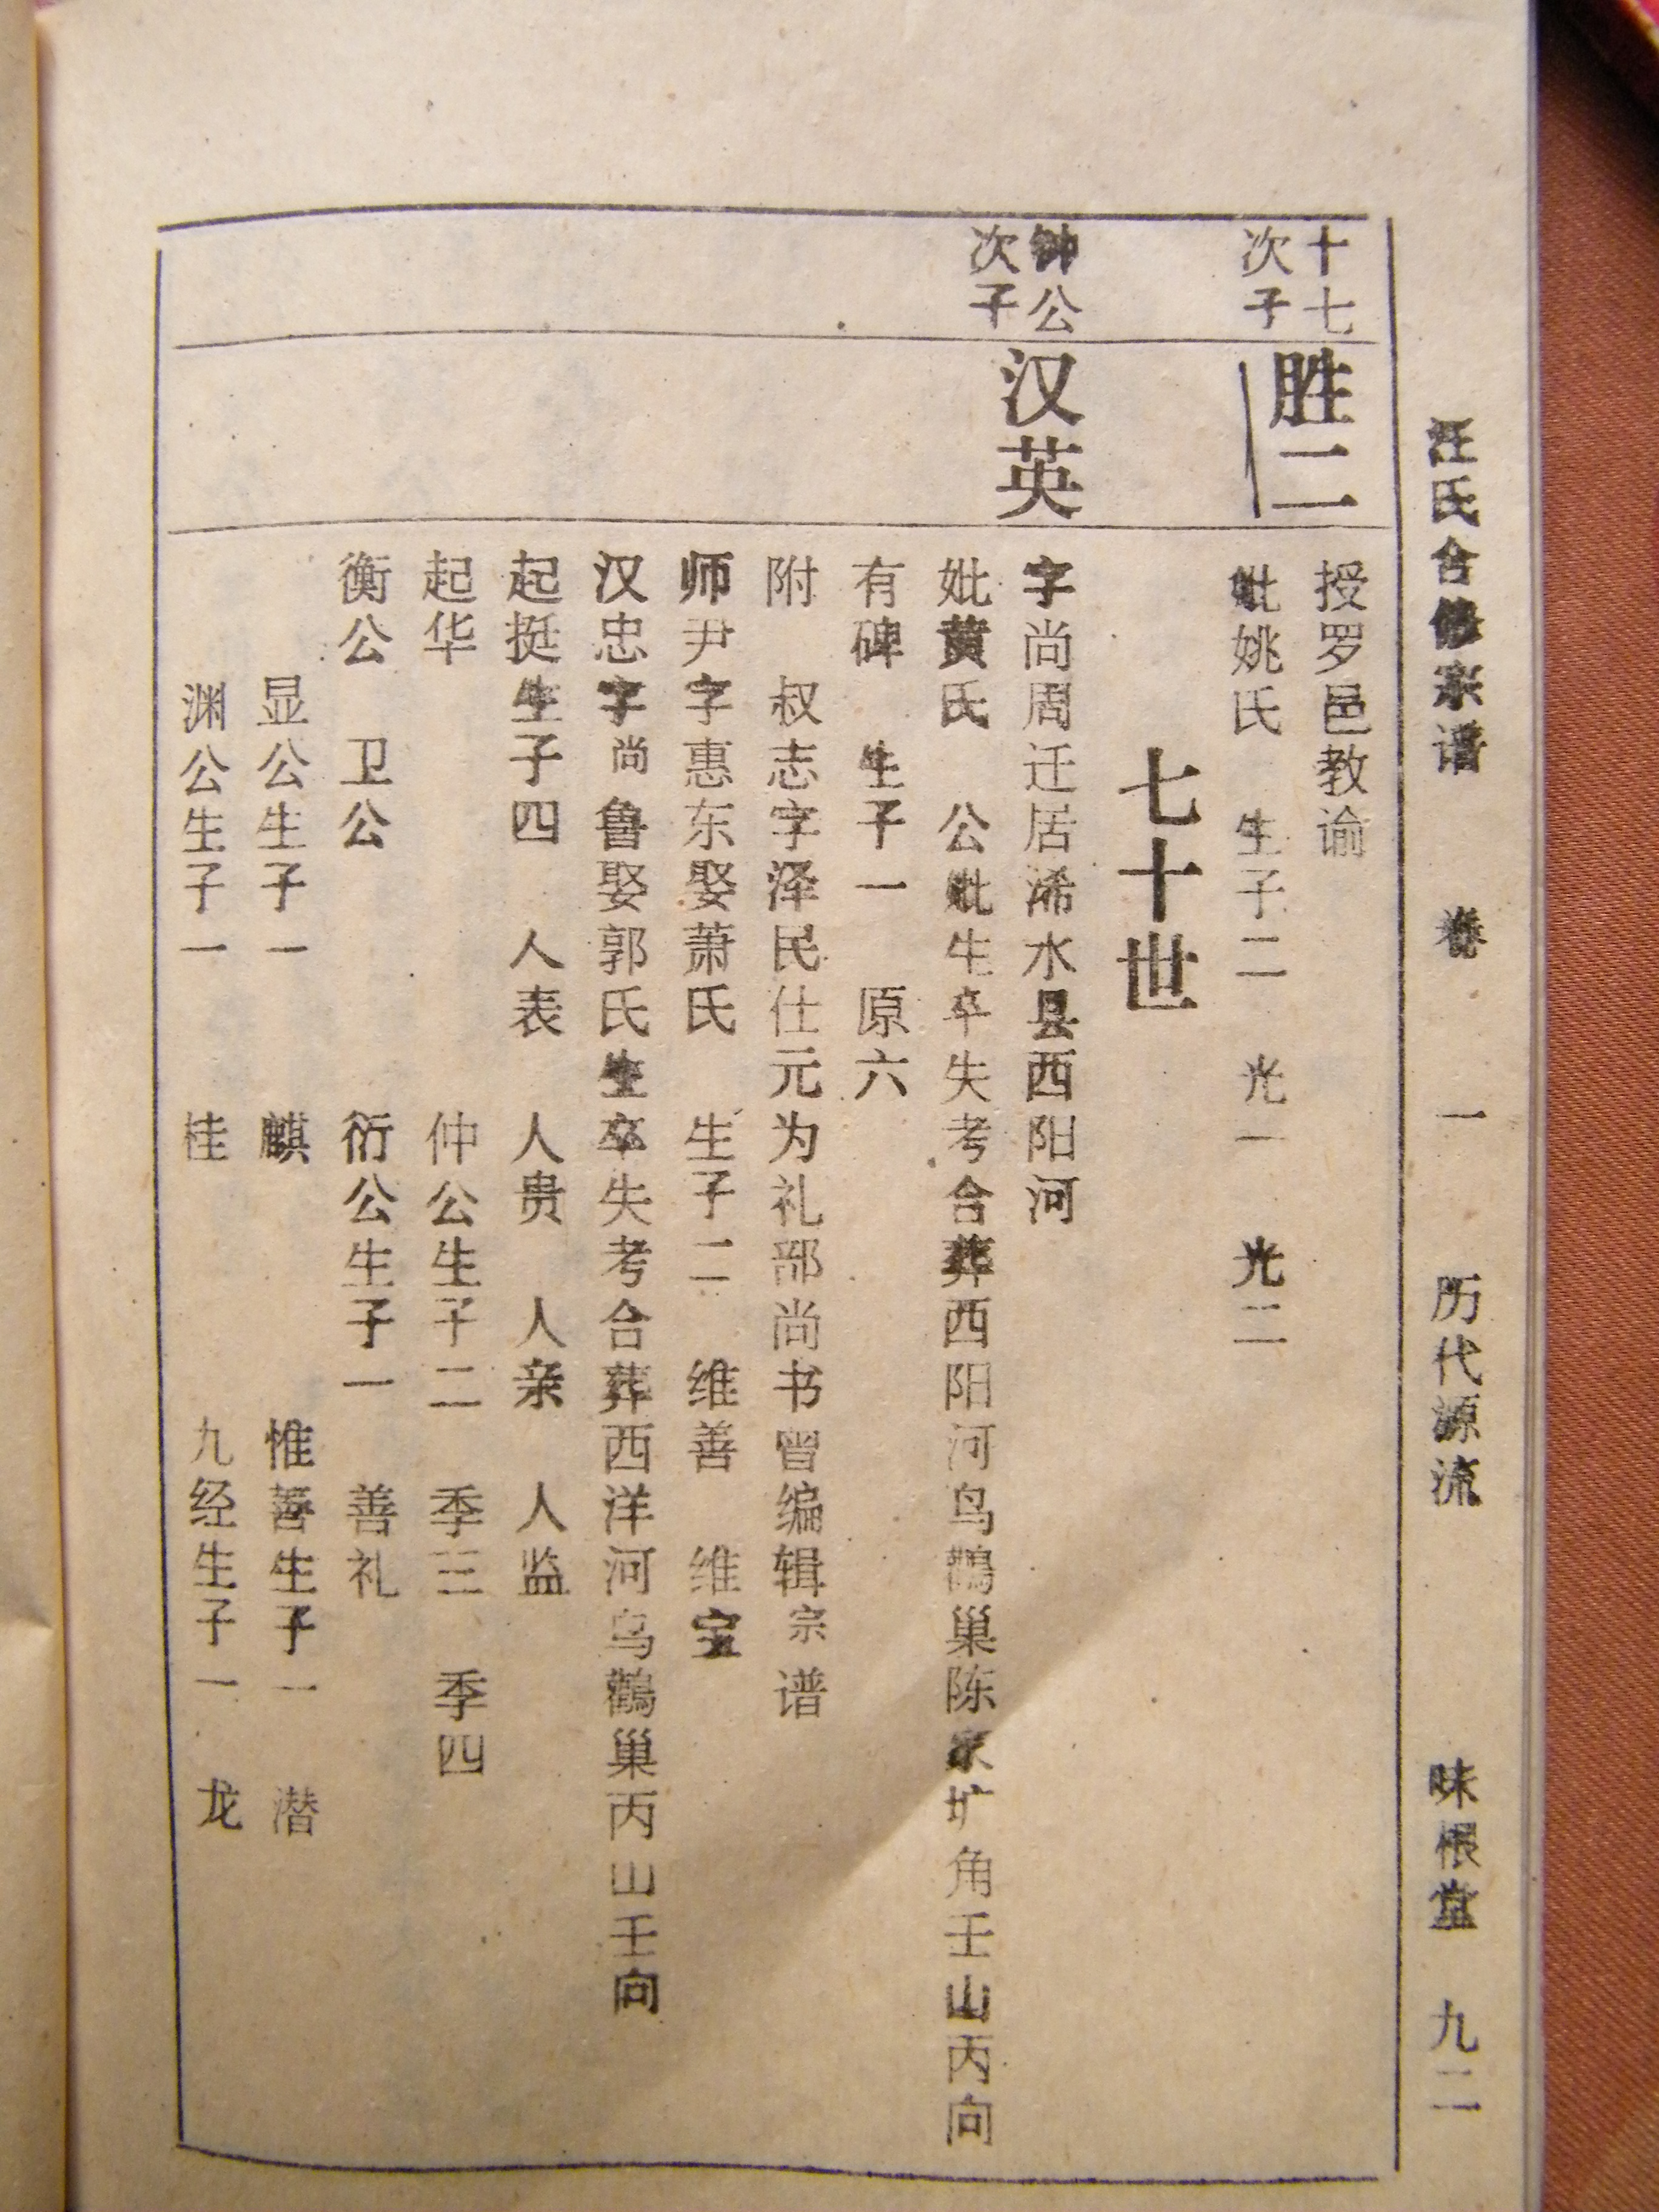 汪氏合修宗谱 卷一 历代源流 味根堂 九二
十七
次子
胜二
授罗邑教谕
妣姚氏 生子二 光一 光二
七十世
钟公
次子
汉英
字尚周迁居浠水县西阳河
妣黄氏 公妣生卒失考合葬西阳河鸟鹊巢陈家圹角壬山丙向
有碑 生子一 原六
附 叔志字泽民仕元为礼部尚书曾编辑宗谱
师尹字惠东娶萧氏 生子二 维善 维宝
汉忠字尚鲁娶郭氏生卒失考合葬西洋河乌鹊巢丙山壬向
起挺生子四 人表 人贵 人亲 人监
起华 仲公生子二 季三 季四
衡公 卫公 衍公生子一 善礼
显公生子一 麒 惟善生子一 潜
渊公生子一 桂 九经生子一 龙